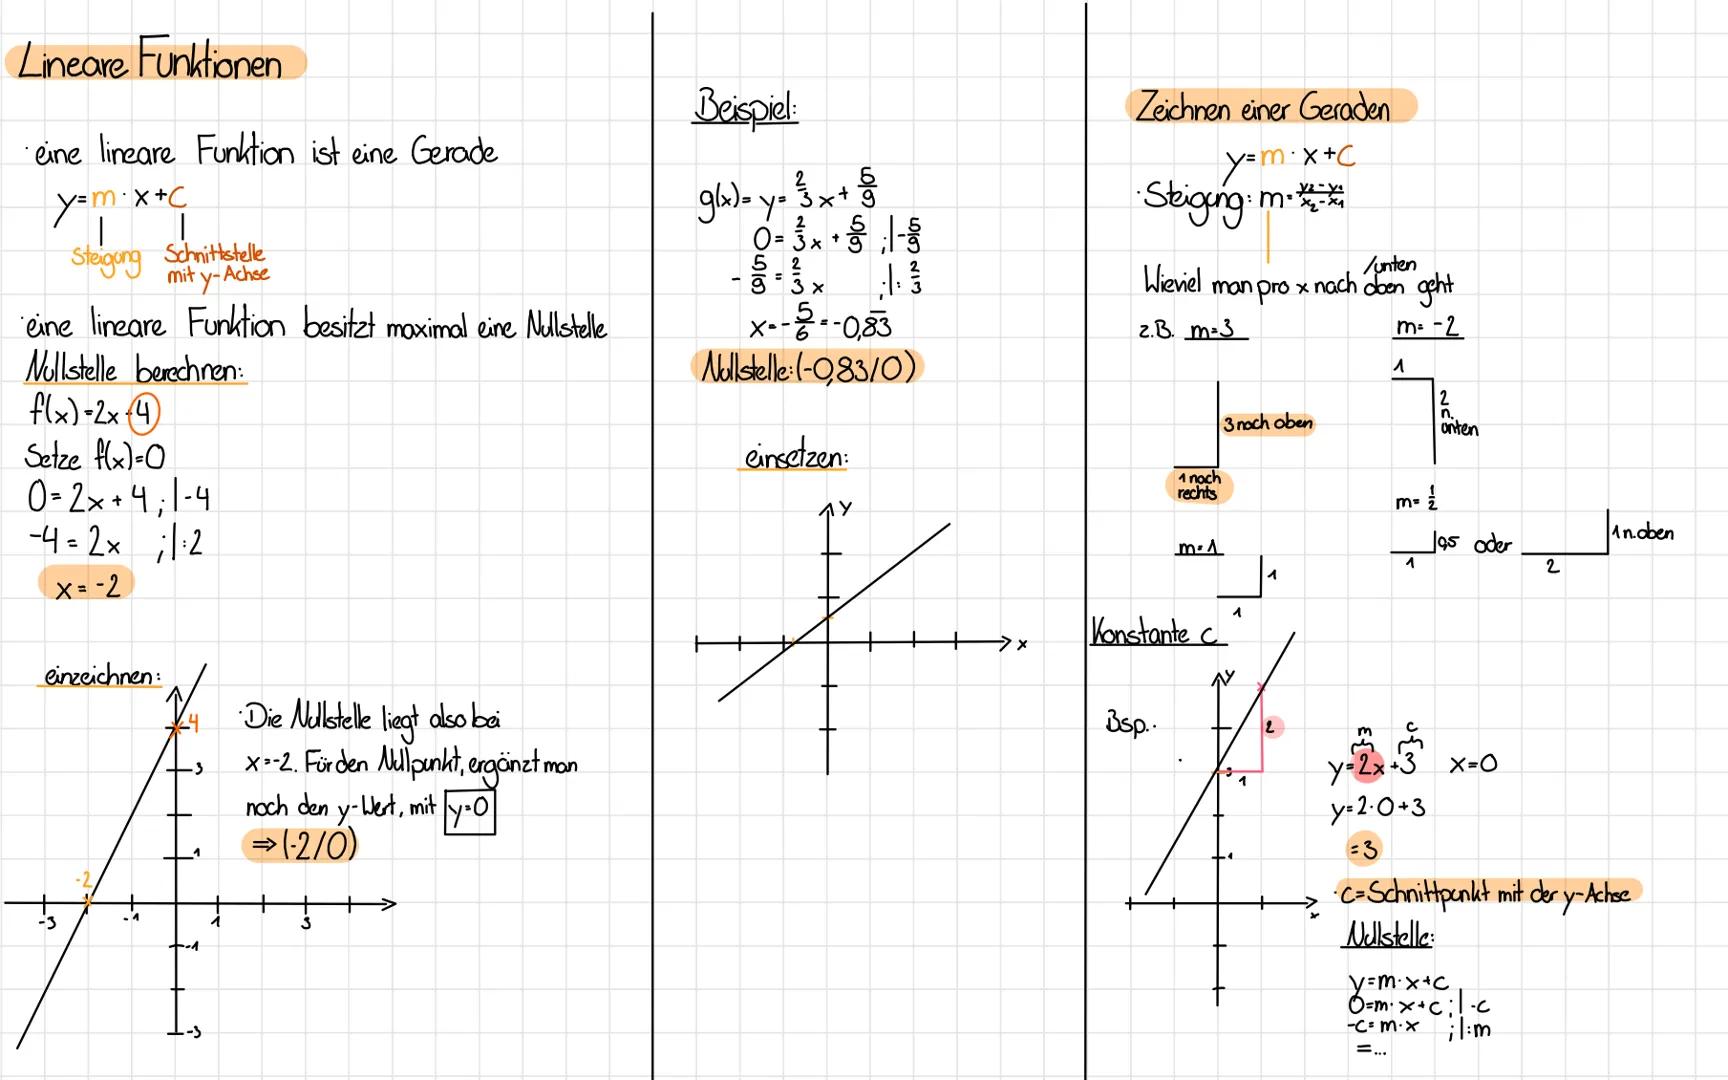 Lineare Funktionen
· eine lineare Funktion ist eine Gerade
y = m · x + c
Steigung
Schnittstelle
mit y-Achse
· eine lineare Funktion besitzt maximal eine Nullstelle
Nullstelle berechnen:
f(x) = 2x + 4
Setze f(x)=0
0 = 2x + 4 ; | -4
-4 = 2x ; | :2
x = -2
einzeichnen:
4
3
1
-2
-3 -1 1 3
-1
-3
· Die Nullstelle liegt also bei
x=-2. Für den Nullpunkt, ergänzt man
noch den y-Wert, mit y=0
⇒ (-2/0)
Beispiel:
g(x) = y = 2/3 x + 5/9
0 = 2/3 x + 5/9 ; | - 5/9
- 5/9 = 2/3 x ; | : 2/3
x = - 5/6 = -0,83̅
Nullstelle: (-0,83/0)
einsetzen:
y
x
Zeichnen einer Geraden
y = m · x + c
· Steigung: m = y₂-y₁/x₂-x₁
/unten
Wieviel man pro x nach oben geht
z.B. m=3
3 nach oben
1 nach
rechts
m=1
1
1
m= -2
1
2
n.
unten
m= 1/2
0,5 oder 1 n. oben
1 2
Konstante c
Bsp.:
y
2
3
1
1
x
m c
y = 2x + 3 x=0
y = 2·0+3
= 3
· c = Schnittpunkt mit der y-Achse
Nullstelle:
y = m · x + c
0 = m · x + c ; | -c
-c = m · x ; | :m
= ...